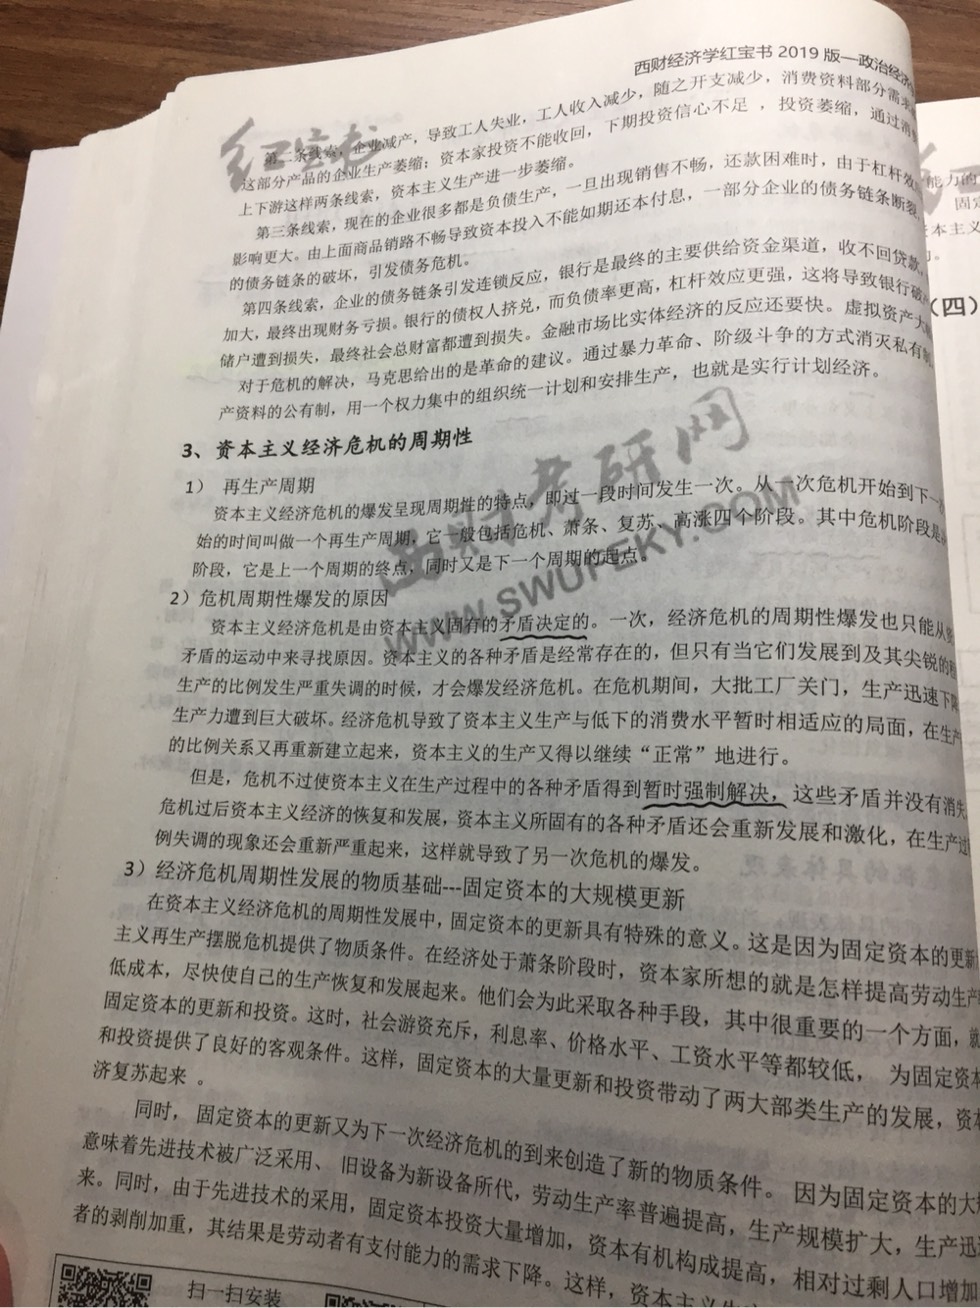 西财经济学红宝书 2019 版—政治经济
第二条线索，企业减产，导致工人失业，工人收入减少，随之开支减少，消费资料部分需求
这部分产品的企业生产萎缩；资本家投资不能收回，下期投资信心不足，投资萎缩，通过
上下游这样两条线索，资本主义生产进一步萎缩。
第三条线索，现在的企业很多都是负债生产，一旦出现销售不畅，还款困难时，由于杠杆效
影响更大。由上面商品销路不畅导致资本投入不能如期还本付息，一部分企业的债务链条断裂
的债务链条的破坏，引发债务危机。
第四条线索，企业的债务链条引发连锁反应，银行是最终的主要供给资金渠道，收不回贷款，
加大，最终出现财务亏损。银行的债权人挤兑，而负债率更高，杠杆效应更强，这将导致银行破
储户遭到损失，最终社会总财富都遭到损失。金融市场比实体经济的反应还要快。虚拟资产大
对于危机的解决，马克思给出的是革命的建议。通过暴力革命、阶级斗争的方式消灭私有制
产资料的公有制，用一个权力集中的组织统一计划和安排生产，也就是实行计划经济。
3、资本主义经济危机的周期性
1） 再生产周期
资本主义经济危机的爆发呈现周期性的特点，即过一段时间发生一次。从一次危机开始到下一
始的时间叫做一个再生产周期，它一般包括危机、萧条、复苏、高涨四个阶段。其中危机阶段是
阶段，它是上一个周期的终点，同时又是下一个周期的起点。
2）危机周期性爆发的原因
资本主义经济危机是由资本主义固有的矛盾决定的。一次，经济危机的周期性爆发也只能从
矛盾的运动中来寻找原因。资本主义的各种矛盾是经常存在的，但只有当它们发展到及其尖锐的
生产的比例发生严重失调的时候，才会爆发经济危机。在危机期间，大批工厂关门，生产迅速下降
生产力遭到巨大破坏。经济危机导致了资本主义生产与低下的消费水平暂时相适应的局面，在生产
的比例关系又再重新建立起来，资本主义的生产又得以继续“正常”地进行。
但是，危机不过使资本主义在生产过程中的各种矛盾得到暂时强制解决，这些矛盾并没有消失
危机过后资本主义经济的恢复和发展，资本主义所固有的各种矛盾还会重新发展和激化，在生产过
例失调的现象还会重新严重起来，这样就导致了另一次危机的爆发。
3）经济危机周期性发展的物质基础---固定资本的大规模更新
在资本主义经济危机的周期性发展中，固定资本的更新具有特殊的意义。这是因为固定资本的更新
主义再生产摆脱危机提供了物质条件。在经济处于萧条阶段时，资本家所想的就是怎样提高劳动生产
低成本，尽快使自己的生产恢复和发展起来。他们会为此采取各种手段，其中很重要的一个方面，就
固定资本的更新和投资。这时，社会游资充斥，利息率、价格水平、工资水平等都较低， 为固定资本
和投资提供了良好的客观条件。这样，固定资本的大量更新和投资带动了两大部类生产的发展，资本
济复苏起来 。
同时， 固定资本的更新又为下一次经济危机的到来创造了新的物质条件。 因为固定资本的大
意味着先进技术被广泛采用、 旧设备为新设备所代，劳动生产率普遍提高，生产规模扩大，生产迅
来。同时，由于先进技术的采用，固定资本投资大量增加，资本有机构成提高，相对过剩人口增加
者的剥削加重，其结果是劳动者有支付能力的需求下降。这样，资本主义生
扫一扫安装
红宝书
西财考研网
WWW.SWUFEKY.COM
能力的
固定
资本主义
（四）